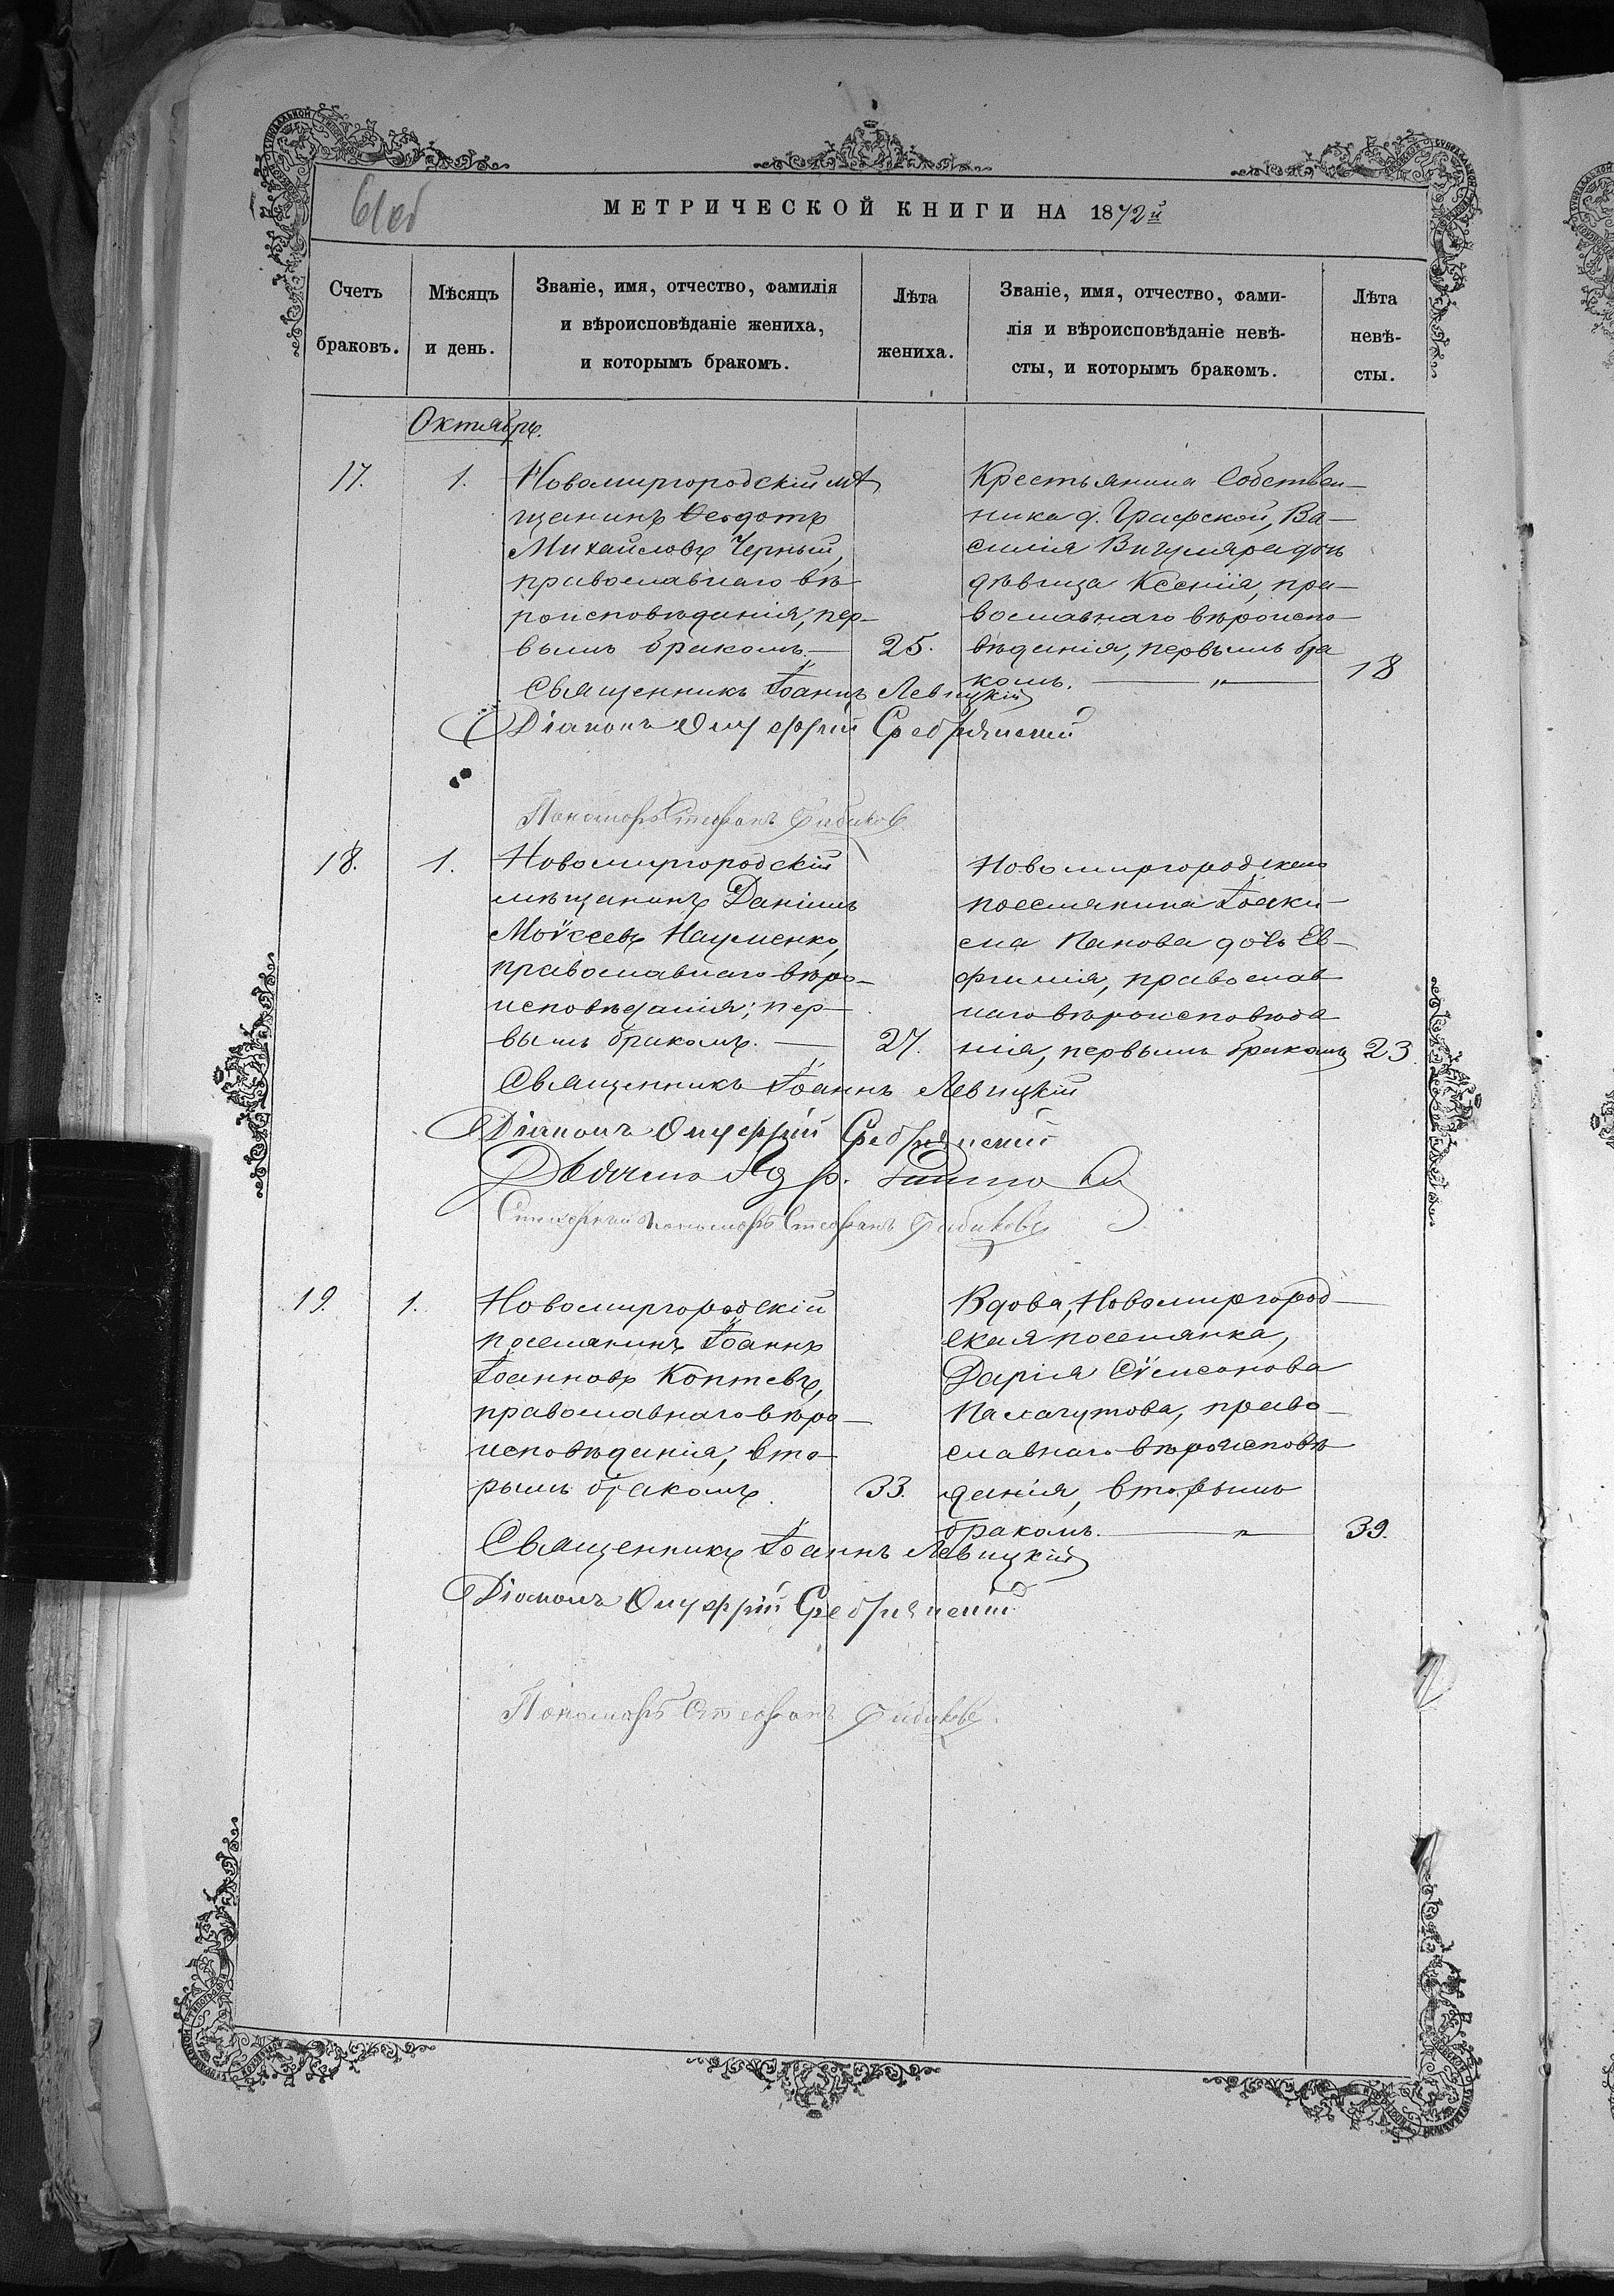 61об
МЕТРИЧЕСКОЙ КНИГИ НА 1872й
Счетъ браковъ.
Мѣсяцъ и день.
Званіе, имя, отчество, фамилія
и вѣроисповѣданіе жениха,
и которымъ бракомъ.
Лѣта
жениха.
Званіе, имя, отчество, фами-
лія и вѣроисповѣданіе невѣ-
сты, и которымъ бракомъ.
Лѣта
невѣ-
сты.
Октябрь.
17. 1.
Новомиргородскій мѣ
щанинъ Ѳеодотъ
Михаиловъ Черный,
православнаго вѣ
роисповѣданія, пер-
вымъ бракомъ. — 25.
Крестьянина Собствен-
ника д. Графской, Ва-
силія дочь
дѣвица Ксенія, пра-
вославнаго вѣроиспо-
вѣданія, первымъ бра
комъ. — „ — 18
Священникъ Іоаннъ Левицкій
Діаконъ Онуфрій Сребрянскій
Пономарь Стефанъ
18. 1.
Новомиргородскій
мѣщанинъ Даніилъ
Моѵсеевъ Науменко,
православнаго вѣро-
исповѣданія; пер-
вымъ бракомъ. — 27.
Новомиргородскаго
поселянина Іоаки-
ма Панова дочь Ев-
фимія, православ
наго вѣроисповѣда
нія, первымъ бракомъ 23
Священникъ Іоаннъ Левицкій
Діаконъ Онуфрій Сребрянскій
пономарь Стефанъ
19. 1.
Новомиргородскій
поселянинъ Іоаннъ
Іоанновъ Коптевъ,
православнаго вѣро-
исповѣданія, вто-
рымъ бракомъ. 33.
Вдова, Новомиргород-
ская поселянка,
Дарія Сѵмеонова
православнаго вѣроисповѣ
данія, вторымъ
бракомъ. — „ — 39.
Священникъ Іоаннъ Левицкій
Діаконъ Онуфрій Сребрянскій
Пономарь Стефанъ